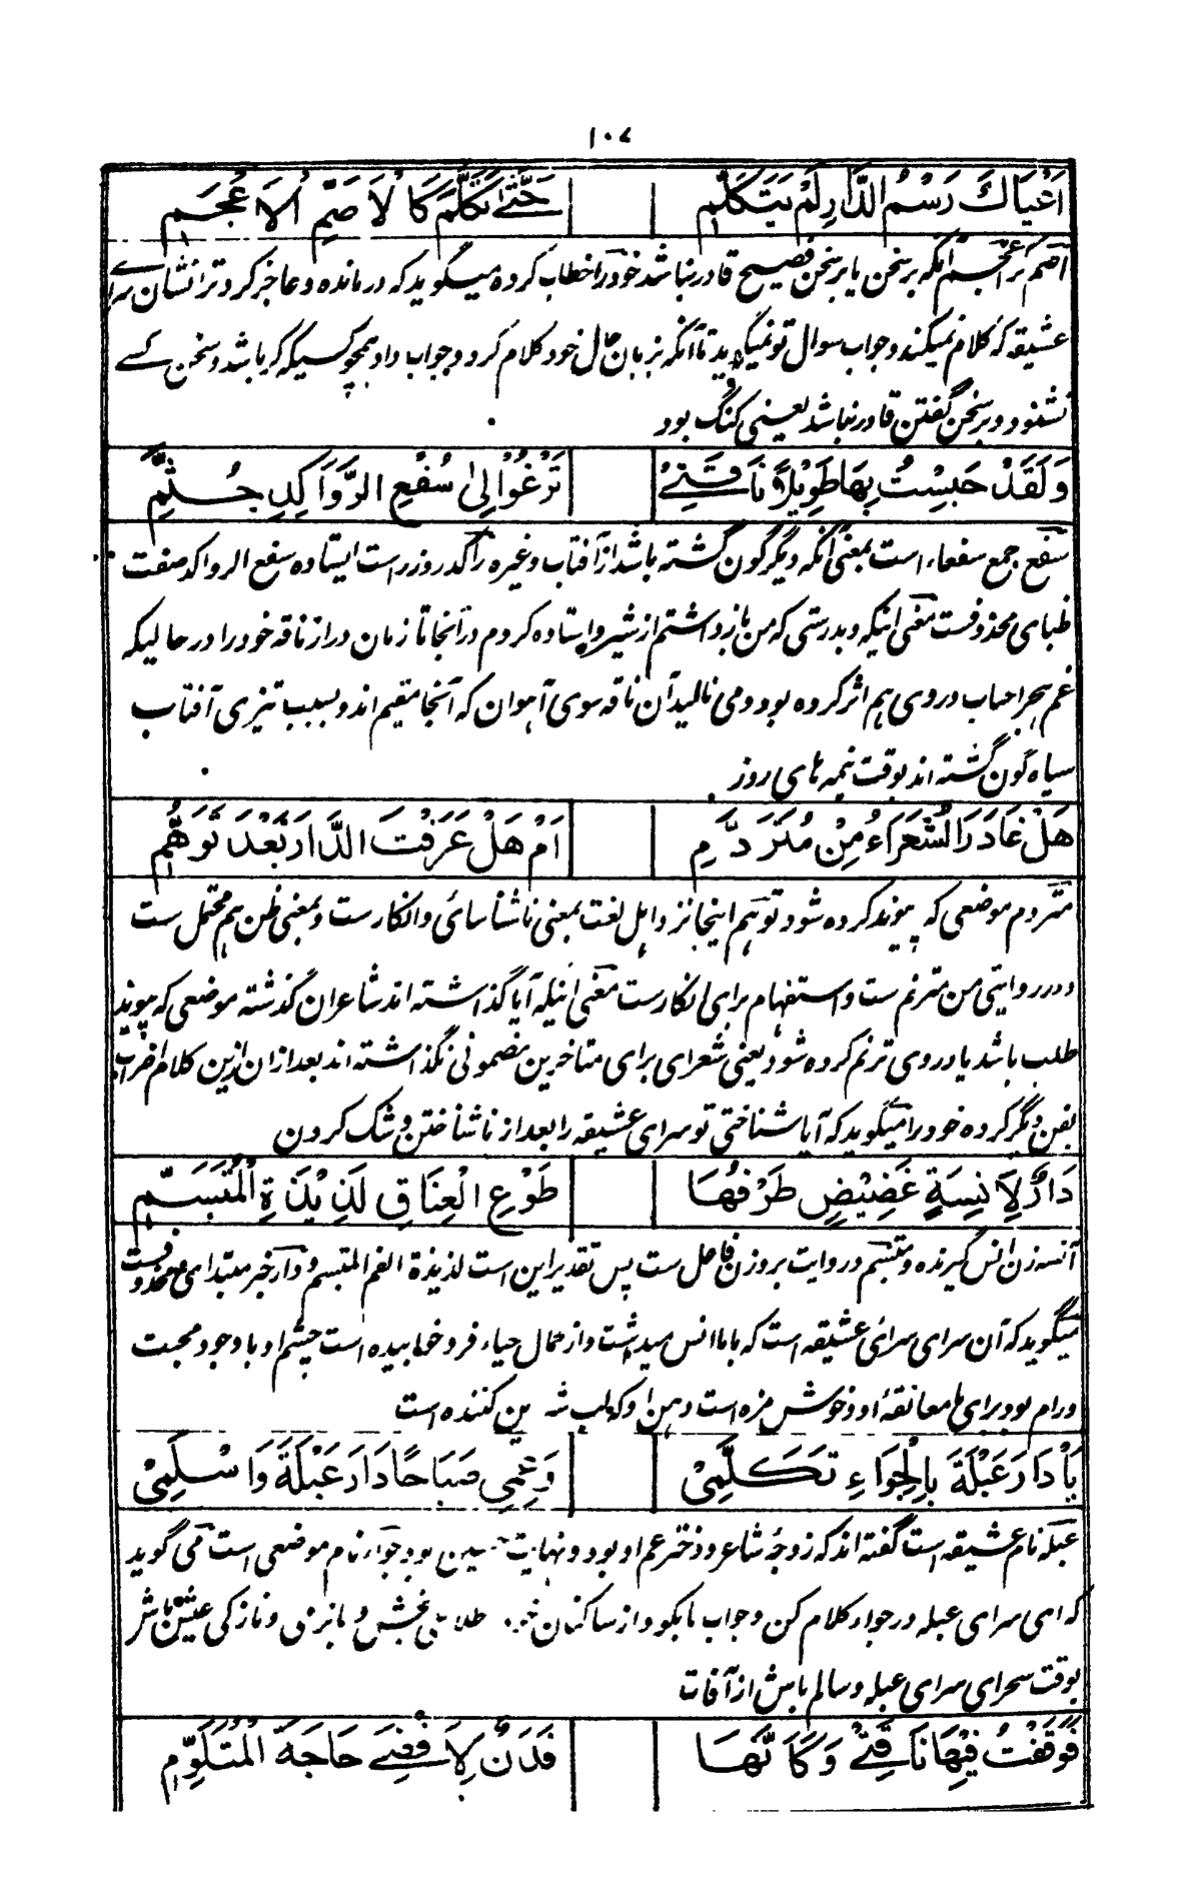 ۱۰۷
اَعْيَاكَ رَسْمُ الدَّارِ لَمْ يَتَكَلَّمِ حَتّٰى تَكَلَّمَ كَا لْاَ صَمِّ الْاَ عْجَمِ
اصم کر اعجم آنکه بر سخن یا بر سخن فصیح قادر نباشد خود را خطاب کرده میگوید که در مانده و عاجز کرد ترا نشان سرا
عشیقه که کلام نمیکند و جواب سوال تو نمیگوید تا آنکه بزبان حال خود کلام کرد و جواب داد همچو کسیکه کر باشد و سخن کسے
نشنود و بر سخن گفتن قادر نباشد یعنی گنگ بود
وَلَقَدْ حَبَسْتُ بِهَا طَوِيْلاً نَاقَتِىْ تَرْغُوْا اِلىٰ سُفْعِ الرَّوَاكِدِ جُثَّمِ
سفع جمع سفعاء است بمعنی آنکه دیگر گون گشته باشد از آفتاب و غیره راکد روز راست ایستاده سفع الرواکد صفت
ظبای محذوفست معنی اینکه و بدرستی که من باز داشتم از سیر و ایستاده کردم در آنجا تا زمان دراز ناقه خود را در حالیکه
غم هجر احباب در وی هم اثر کرده بود و می نالید آن ناقه سوی آهوان که آنجا مقیم اند و بسبب تیزی آفتاب
سیاه گون گشته اند بوقت نیمه های روز
هَلْ غَادَرَ الشُّعَرَاءُ مِنْ مُتَرَ دَّ مِ اَمْ هَلْ عَرَفْتَ الدَّارَ بَعْدَ تَوَهُّمِ
متردم موضعی که پیوند کرده شود توهم اینجا نزد اهل لغت بمعنی ناشناسائی و انکار ست و بمعنی ظن هم محتمل ست
و در روایتی من مترنم ست و استفهام برای انکار ست معنی اینکه آیا گذاشته اند شاعران گذشته موضعی که پیوند
طلب باشد یا در وی ترنم کرده شود یعنی شعرای برای متاخرین مضمونی نگذاشته اند بعد ازان ازین کلام اضراب
بفن دیگر کرده خود را میگوید که آیا شناختی تو سرای عشیقه را بعد از ناشناختن و شک کردن
دَارٌ لِاٰ نِسَةٍ غَضِيْضٍ طَرْفُهَا طَوْعِ الْعِنَاقِ لَذِ يْذَ ةِ الْمُتَبَسَّمِ
آنسه زن انس گیرنده و متبسم در روایت بروزن فاعل ست پس تقدیر این است لذیذة الفم المتبسم و دار خبر مبتدای محذوفست
میگوید که آن سرای سرای عشیقه است که با ما انس میداشت و از کمال حیاء فرو خوابیده است چشم او با وجود محبت
و رام بود برای ما معانقه او و خوش مزه است دهن او که لب شیرین کننده است
يَا دَا رَ عَبْلَةَ بِالْجِوَاءِ تَكَلَّمِىْ وَ عِمِى صَبَاحًا دَا رَ عَبْلَةَ وَا سْلَمِىْ
عبله نام عشیقه است گفته اند که زوجهٔ شاعر و دختر عم او بود و نهایت حسین بود جواء نام موضعی است می گوید
که ای سرای عبله در جواء کلام کن و جواب ما بگو و از ساکنان خود و با نرمی و نازکی عیش باش
بوقت سحر ای سرای عبله و سالم باش از آفات
فَوَقَفْتُ فِيْهَا نَا قَتِىْ وَ كَا َنَّهَا فَدَنٌ لِاَ قْضِىَ حَاجَةَ الْمُتَلَوِّمِ